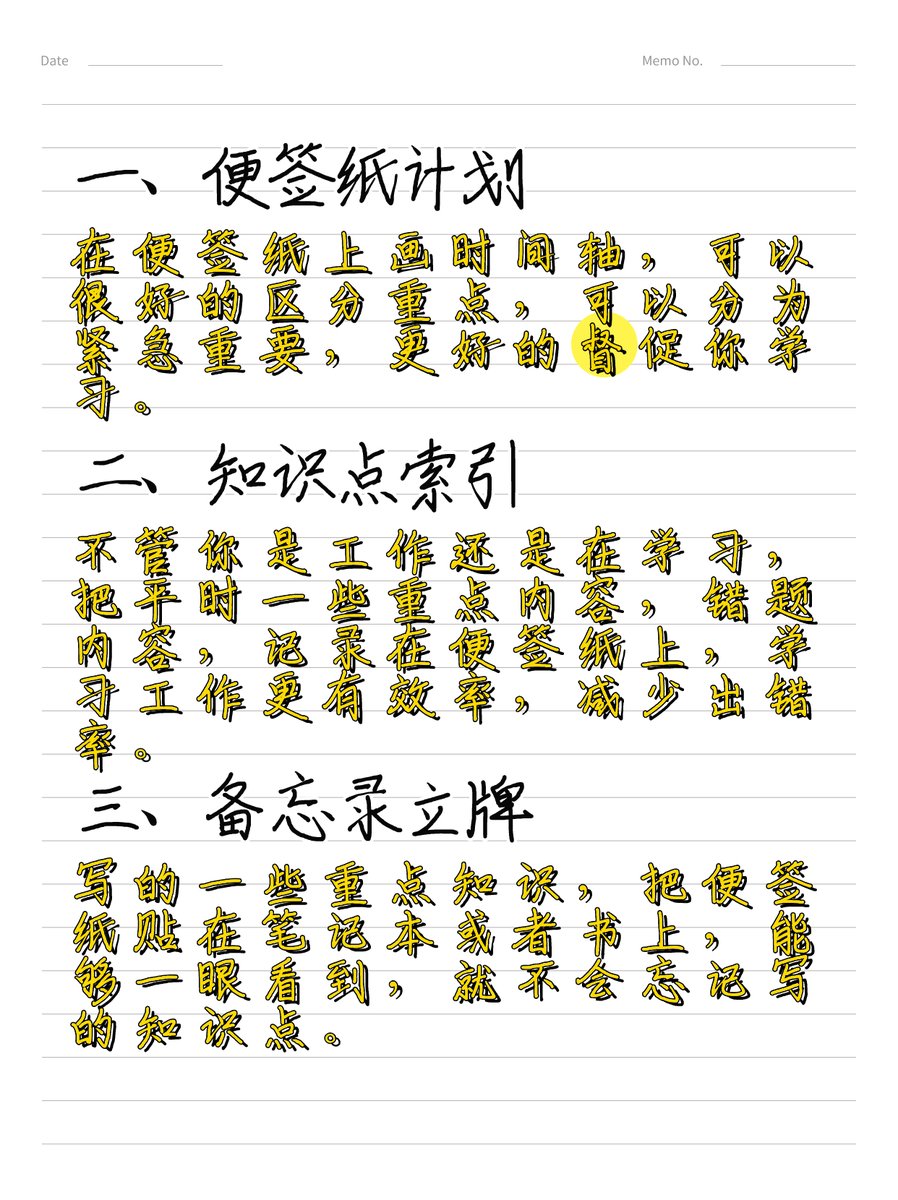 Date Memo No.
一、便签纸计划
在便签纸上画时间轴，可以
很好的区分重点，可以分为
紧急重要，更好的督促你学
习。
二、知识点索引
不管你是工作还是在学习，
把平时一些重点内容，错题
内容，记录在便签纸上，学
习工作更有效率，减少出错
率。
三、备忘录立牌
写的一些重点知识，把便签
纸贴在笔记本或者书上，能
够一眼看到，就不会忘记写
的知识点。